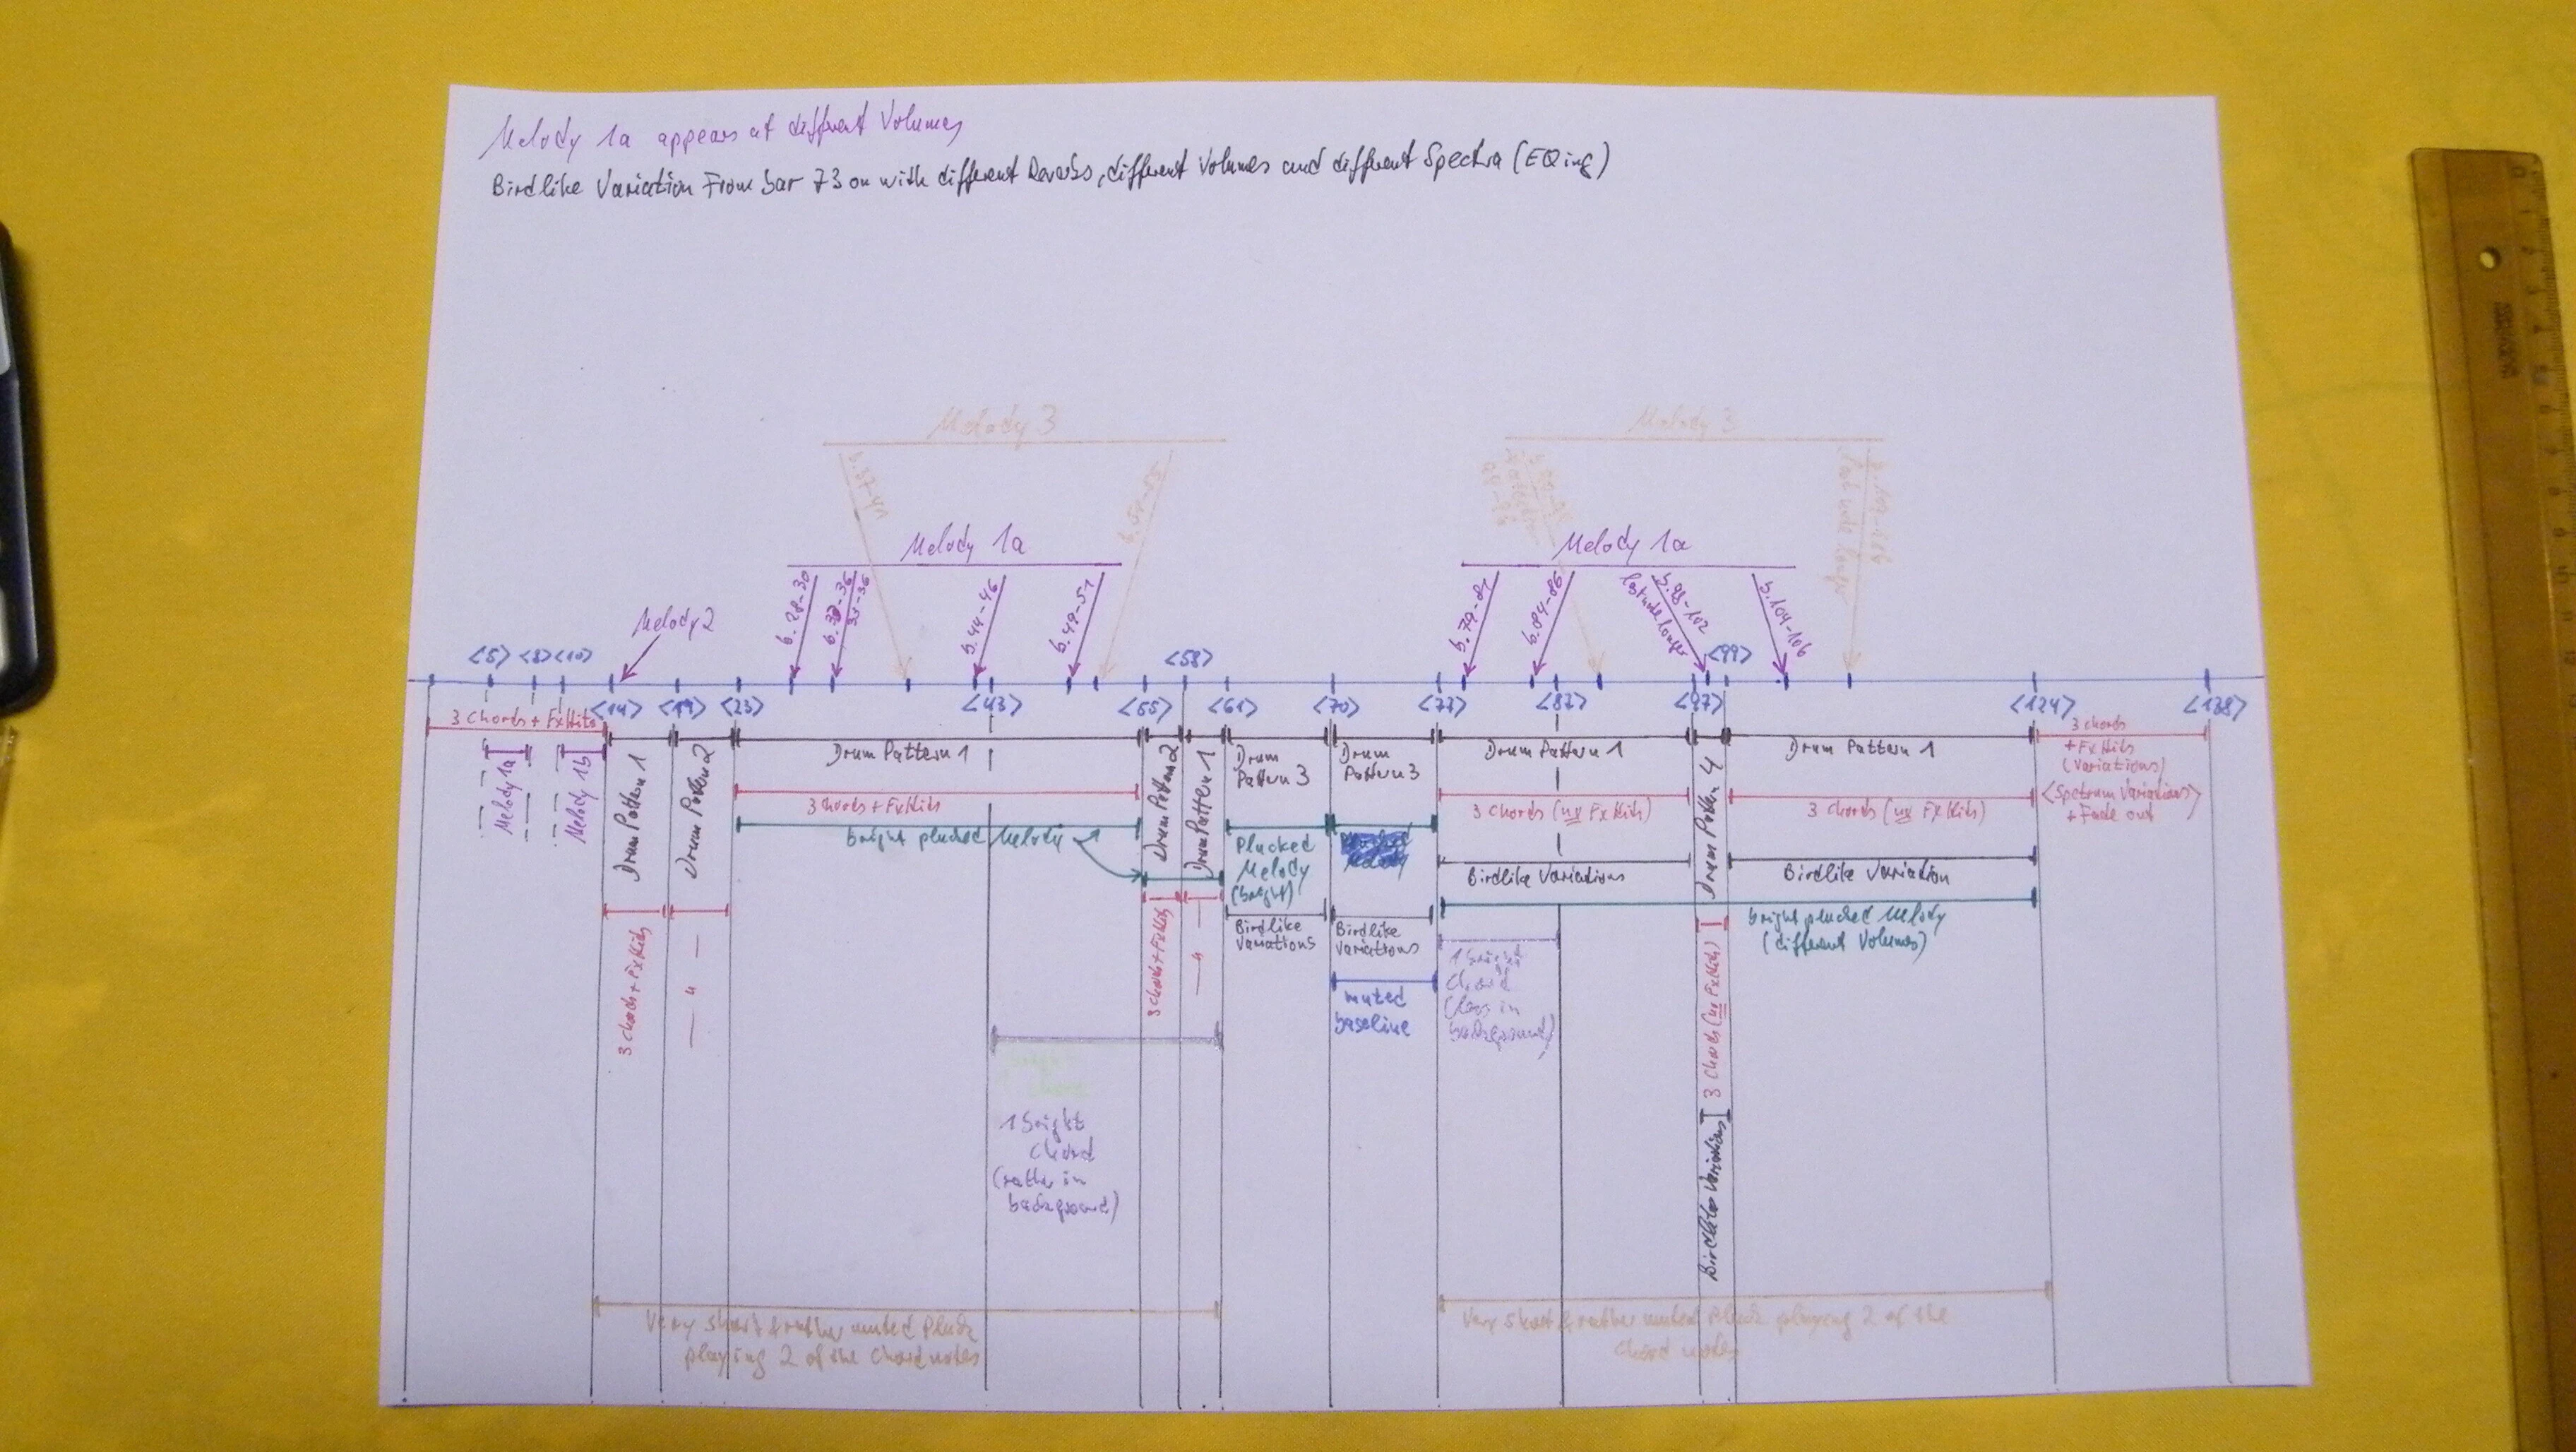 Melody 1a appears at different Volumes
Birdlike Variation From bar 73 on with different Reverbs, different Volumes and different Spectra (EQing)
Melody 3
Melody 3
b. 37-41
Melody 1a
Melody 1a
b. 28-30
33-36
b. 44-46
b. 49-51
b. 79-81
b. 84-86
b. 98-102
last note longer
b. 104-106
Melody 2
<5> <8> <10>
<58>
<99>
<14> <19> <23> <43> <55> <61> <70> <73> <82> <97> <124> <138>
3 Chords + FxHits
Melody 1a
Melody 1b
Drum Pattern 1
Drum Pattern 2
Drum Pattern 1
Drum Pattern 2
Drum Pattern 1
Drum
Pattern 3
Drum
Pattern 3
Drum Pattern 1
Drum Pattern 4
Drum Pattern 1
3 chords
+ FxHits
(Variations)
<Spectrum Variations>
+ Fade out
3 Chords + FxHits
3 Chords (no FxHits)
3 Chords (no FxHits)
bright plucked Melody
Plucked
Melody
(bright)
Birdlike Variations
Birdlike Variation
bright plucked Melody
(different Volumes)
Birdlike
Variations
Birdlike
Variations
muted
baseline
3 Chords + FxHits
— " —
3 Chords + FxHits
— " —
1 bright
Chord
(less in
background)
3 Chords (no FxHits)
Birdlike Variations
1 bright
Chord
(rather in
background)
Very short & rather muted Pluck
playing 2 of the Chord notes
Very short & rather muted Pluck playing 2 of the
Chord notes